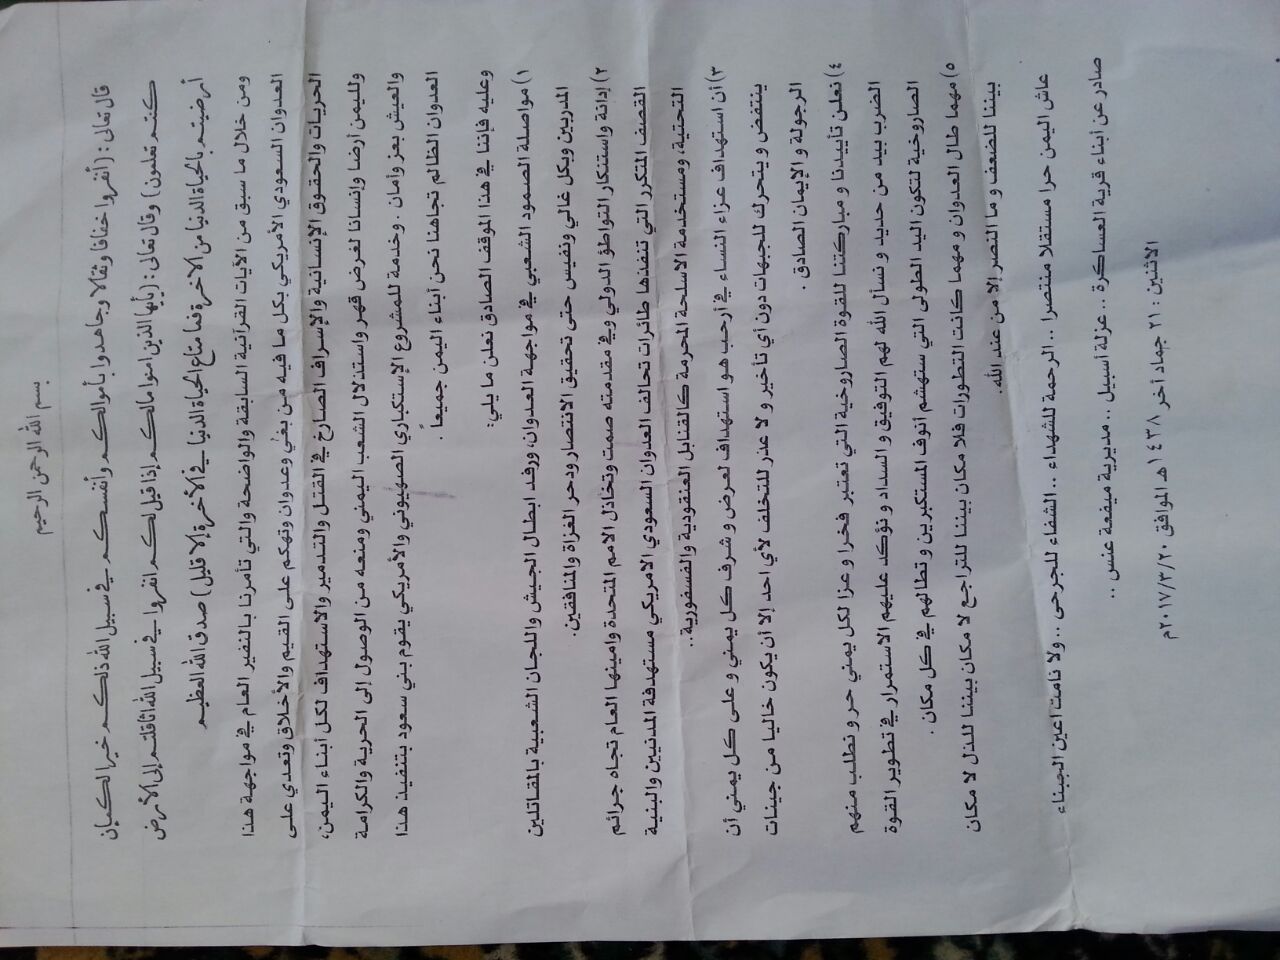 بسم الله الرحمن الرحيم
قال تعالى : (أنفروا خفافا وثقالا وجاهدوا بأموالكم وأنفسكم في سبيل الله ذلكم خير لكم إن
كنتم تعلمون) وقال تعالى : (يأيها الذين امنوا مالكم إذا قيل لكم انفروا في سبيل الله اثاقلتم إلى الأرض
أرضيتم بالحياة الدنيا من الاخرة فما متاع الحياة الدنيا في الأخرة إلا قليل) صدق الله العظيم
ومن خلال ما سبق من الآيات القرآنية السابقة والواضحة والتي تأمرنا بالنفير العام في مواجهة هذا
العدوان السعودي الأمريكي بكل ما فيه من بغي وعدوان وتهكم على القيم والأخلاق وتعدي على
الحريات والحقوق الإنسانية والإسراف الصارخ في القتل والتدمير والاستهداف لكل أبناء اليمن،
ولليمن أرضا وإنسانا لغرض قهر واستذلال الشعب اليمني ومنعه من الوصول إلى الحرية والكرامة
والعيش بعز وأمان . وخدمة للمشروع الإستكباري الصهيوني والأمريكي يقوم بني سعود بتنفيذ هذا
العدوان الظالم تجاهنا نحن أبناء اليمن جميعاً .
وعليه فإننا في هذا الموقف الصادق نعلن ما يلي:
١) مواصلة الصمود الشعبي في مواجهة العدوان، ورفد ابطال الجيش واللجان الشعبية بالمقاتلين
المدربين وبكل غالي ونفيس حتى تحقيق الانتصار ودحر الغزاة والمنافقين.
٢) إدانة واستنكار التواطؤ الدولي وفي مقدمته صمت وتخاذل الامم المتحدة وامينها العام تجاه جرائم
القصف المتكرر التي تنفذها طائرات تحالف العدوان السعودي الامريكي مستهدفة المدنيين والبنية
التحتية، ومستخدمة الاسلحة المحرمة كالقنابل العنقودية والفسفورية..
٣) أن استهداف عزاء النساء في أرحب هو استهداف لعرض و شرف كل يمني و على كل يمني أن
ينتفض و يتحرك للجبهات دون أي تأخير و لا عذر للتخلف لأي احد إلا أن يكون خاليا من جينات
الرجولة و الإيمان الصادق .
٤) نعلن تأييدنا و مباركتنا للقوة الصاروخية التي تعتبر فخرا و عزا لكل يمني حر و نطلب منهم
الضرب بيد من حديد و نسأل الله لهم التوفيق و السداد و نؤكد عليهم الاستمرار في تطوير القوة
الصاروخية لتكون اليد الطولى التي ستهشم أنوف المستكبرين و تطالهم في كل مكان .
٥) مهما طال العدوان و مهما كانت التطورات فلا مكان بيننا للتراجع لا مكان بيننا للذل لا مكان
بيننا للضعف و ما النصر إلا من عند الله.
عاش اليمن حرا مستقلا منتصرا .. الرحمة للشهداء .. الشفاء للجرحى .. ولا نامت أعين الجبناء
صادر عن أبناء قرية العساكرة .. عزلة اسبيل .. مديرية ميفعة عنس ..
الاثنين : ٢١ جماد آخر ١٤٣٨هـ الموافق ٢٠١٧/٣/٢٠م